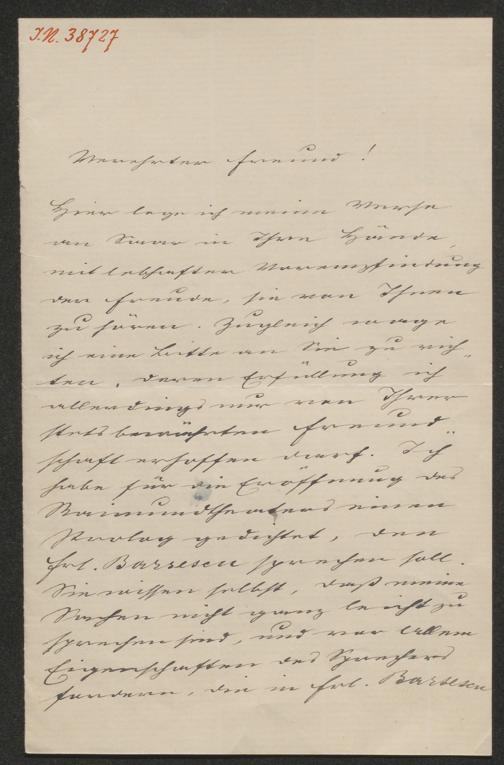 I.N. 38727
Verehrter Freund!
Hier lege ich meine Verse
an Saar in Ihre Hände,
mit lebhafter Vorempfindung
der Freude, sie von Ihnen
zu hören. Zugleich wage
ich eine Bitte an Sie zu rich-
ten, deren Erfüllung ich
allerdings nur von Ihrer
stets bewährten Freund-
schaft erhoffen darf. Ich
habe für die Eröffnung des
Raimundtheaters einen
Prolog gedichtet, den
Frl. Barsescu sprechen soll.
Sie wissen selbst, daß meine
Sachen nicht ganz leicht zu
sprechen sind, und vor Allem
Eigenschaften des Sprechers
fordern, die in Frl. Barsescu